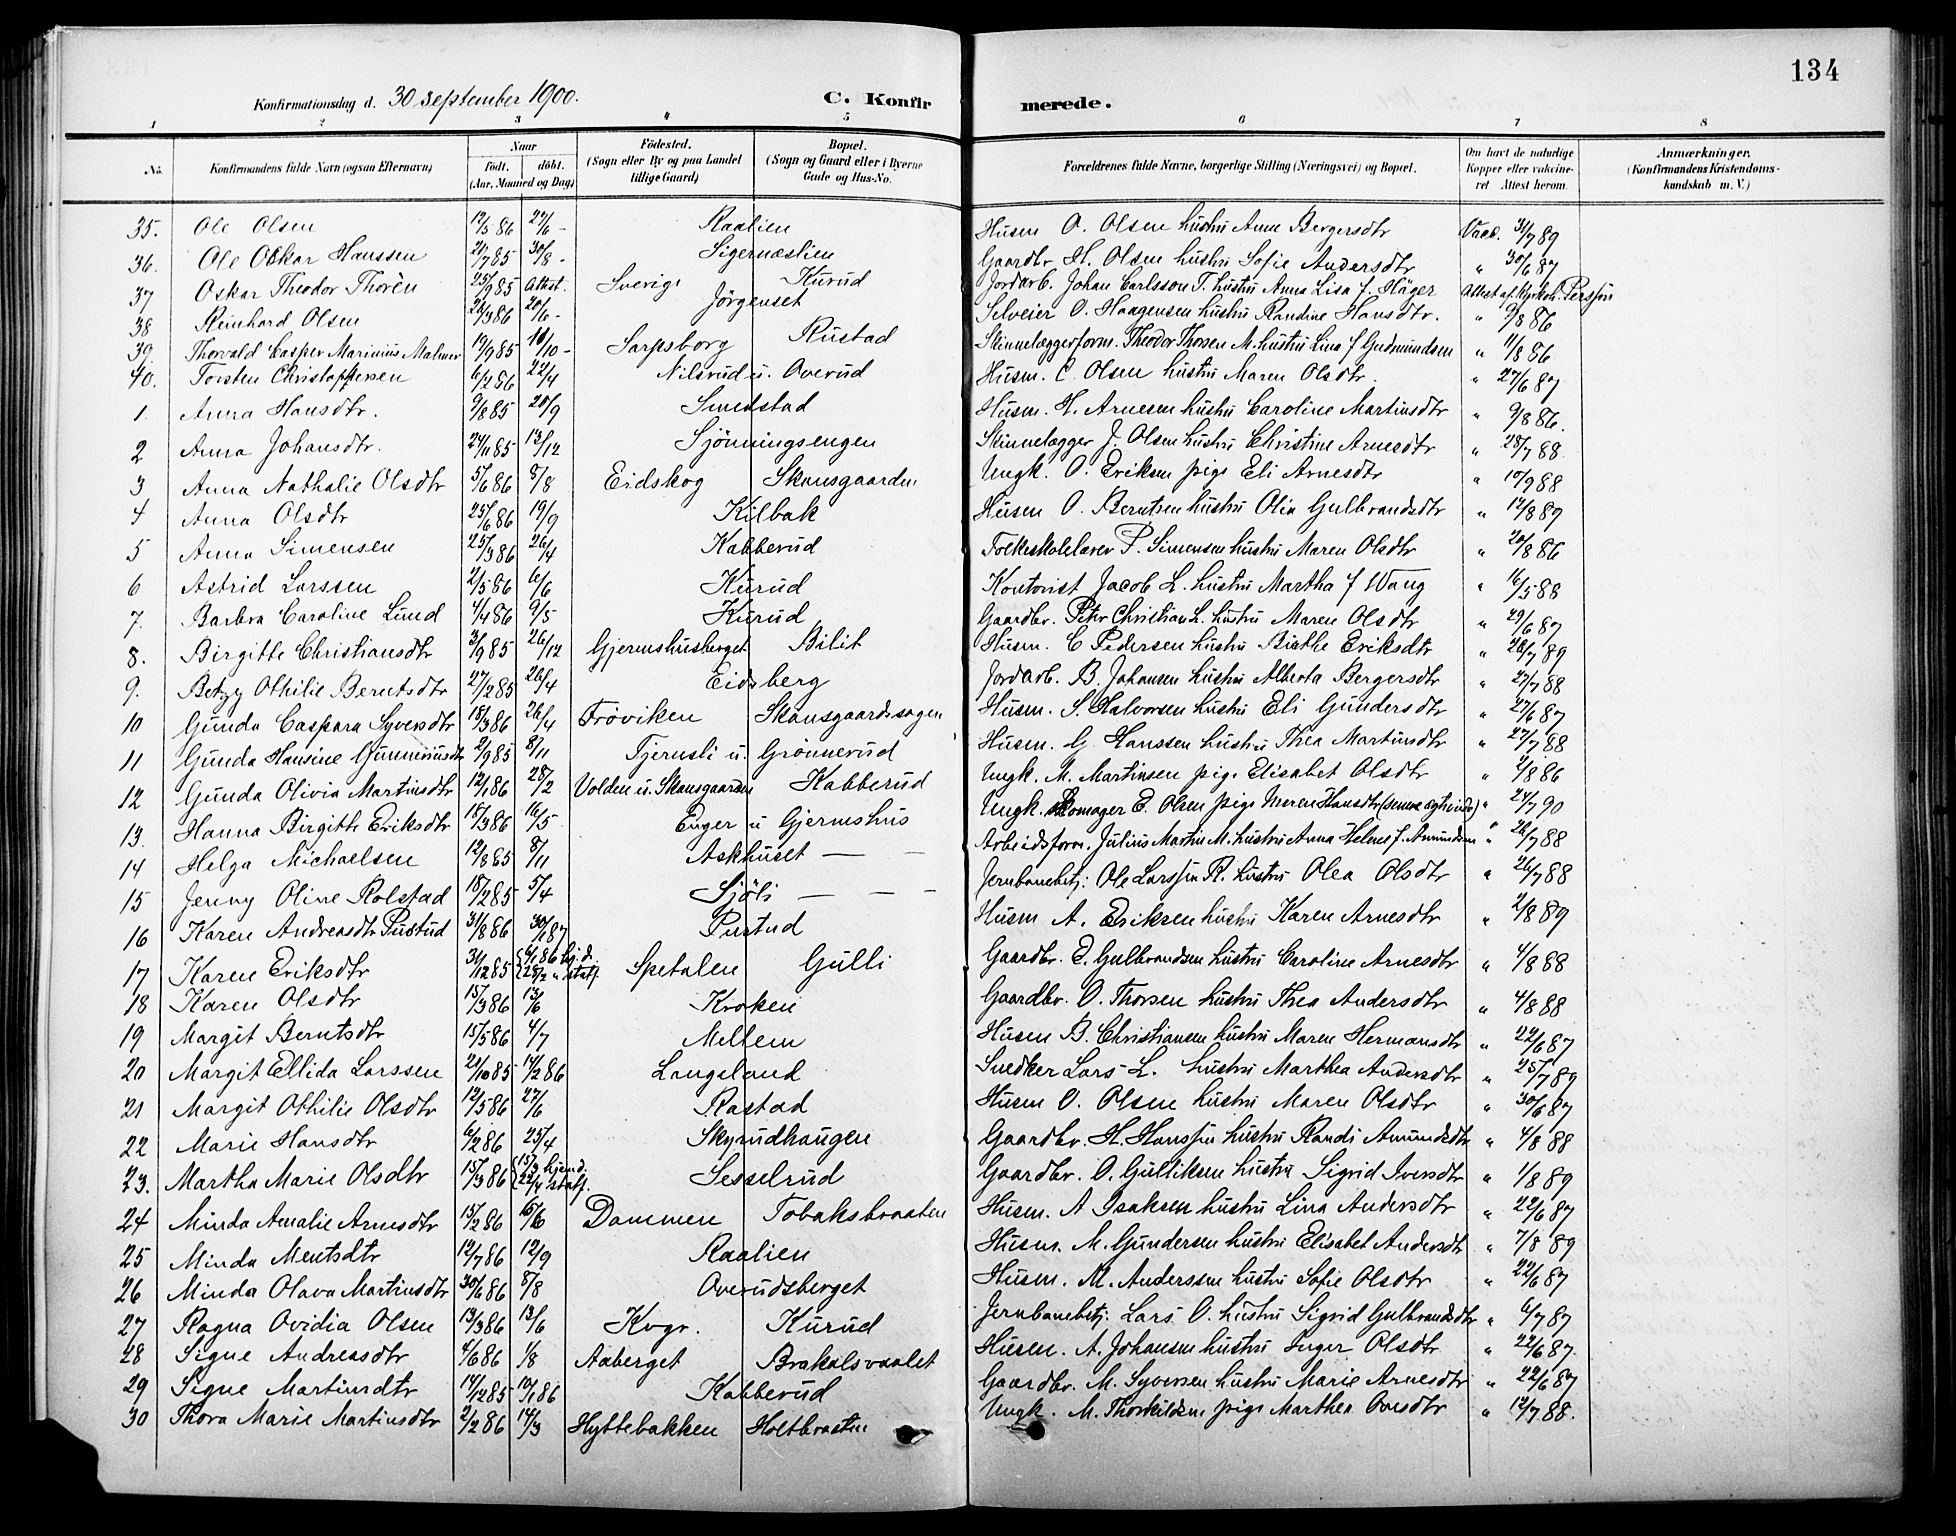 134
Konfirmationsdag d. 30 september 1900. C. Konfir merede.
1 2 3 4 5 6 7 8
No. Konfirmandens fulde Navn (ogsaa Efternavn) Naar født. døbt. (Aar, Maaned og Dag) Fødested. (Sogn eller By og paa Landet tillige Gaard) Bopæl. (Sogn og Gaard eller i Byerne Gade og Hus-No. Forældrenes fulde Navne, borgerlige Stilling (Næringsvei) og Bopæl. Om havt de naturlige Kopper eller vakcineret Attest herom. Anmærkninger. (Konfirmandens Kristendomskundskab m. V.)
35. Ole Olsen 12/5 86 27/6 - Raalien Husm O. Olsen hustru Anne Bergersdtr Vacc. 31/7 89
36. Ole Oskar Hanssen 21/7 85 30/8 - Sigernæslien Gaardbr H. Olsen hustru Sofie Andersdtr " 30/6 87
37 Oskar Theodor Thorèn 25/9 85 Attest. Sverige Kurud Jordarb. Johan Carlsson T. hustru Anna Lisa f. Häger Attest af Kyrkoh. Persson
38 Reinhard Olsen 26/3 86 20/6 - Jörgenset Selveier O. Haagensen hustru Randine Hansdtr. " 9/8 86
39. Thorvald Casper Marinius Malmer 19/9 85 18/10 - Sarpsborg Rustad Skinnelæggerform. Theodor Thorsen M. hustru Lina f Gudmundsen " 11/8 86
40. Torsten Christoffersen 6/2 86 22/4 Nilsrud u. Overud Husm. C. Olsen hustru Maren Olsdtr. " 27/6 87
1. Anna Hansdtr. 9/8 85 20/9 Smedstad Husm. H. Arnesen hustru Caroline Martinsdtr " 9/8 86.
2 Anna Johansdtr. 24/11 85 13/12 Sjönningsengen Skinnelægger J. Olsen hustru Christine Arnesdtr " 28/7 88
3 Anna Nathalie Olsdtr 5/6 86 8/8 Eidskog Skansgaarden Ungk. O. Eriksen pige Eli Arnesdtr " 10/9 88
4 Anna Olsdtr 25/6 86 19/9 Kilbak Husm O. Berntsen hustru Olia Gulbrandsdtr " 12/8 89
5 Anna Simensen 25/3 86 26/4 Kabberud Folkeskolelærer P. Simensen hustru Maren Olsdtr " 20/8 86
6 Astrid Larssen 2/5 86 6/6 Kurud Kontorist Jacob L. hustru Martha f Wang " 16/5 88
7. Barbra Caroline Lund 4/4 86 9/5 Kurud Gaardbr. Peter Christian L. hustru Maren Olsdtr " 29/6 87
8. Birgitte Christiansdtr 3/9 85 26/12 Gjermshusberget Bilit Husm. C Pedersen hustru Birthe Eriksdtr " 28/7 89
9. Betzy Othilie Berntsdtr 27/2 85 26/4 Eidsberg Jordarb. B. Johansen hustru Alberta Bergersdtr " 27/7 88
10 Gunda Caspara Syversdtr 18/3 86 26/4 Fröviken Skansgaardssagen Husm. S. Halvorsen hustru Eli Gundersdtr " 27/6 87
11 Gunda Hansine Gunneriusdtr 2/9 85 8/11 Tjernsli u. Grönnerud Husm. G. Hanssen hustru Thea Martinsdtr " 27/7 88
12 Gunda Olivia Martinsdtr 12/1 86 28/2 Volden u. Skansgaarden Kabberud Ungk. M. Martinsen pige Elisabet Olsdtr " 2/8 86
13. Hanna Birgitte Eriksdtr 18/3 86 16/5 Enger u Gjermshus Ungk. Skomager E. Olsen pige Maren Hansdtr " 24/7 90
14 Helga Michaelsen 12/8 85 8/11 Askhuset — — Arbeidsform. Julius Martin M. hustru Anna Helene f. Amundsen " 26/7 88
15 Jenny Oline Rolstad 18/2 85 5/4 Sjöli — — — Jernbanebetj: Ole Larssen R. hustru Olea Olsdtr " 26/7 88
16 Karen Andreasdtr Pustud 31/8 86 30/1 87 Pustud Husm A. Eriksen hustru Karen Arnesdtr " 2/8 89
17 Karen Eriksdtr 31/12 85 6/1 86 hj.d. 28/2 i. stadf Spetalen Gulli Gaardbr. E. Gulbrandsen hustru Caroline Arnesdtr " 4/8 88
18 Karen Olsdtr 15/3 86 13/6 Kroken Gaardbr. O. Thorsen hustru Thea Andersdtr " 4/8 88
19 Margit Berntsdtr 15/5 86 4/7 Mellem Husm B. Christiansen hustru Maren Hermansdtr " 22/6 87
20 Margit Ellida Larssen 21/10 85 14/2 86 Langeland Snedker Lars L. hustru Marthea Andersdtr " 25/7 89
21 Margit Othilie Olsdtr 12/5 86 27/6 Rastad Husm O. Olsen hustru Maren Olsdtr " 30/6 87
22 Marie Hansdtr 6/2 86 25/4 Skyrudhaugen Gaardbr. H. Hanssen hustru Randi Amundsdtr " 4/8 88
23. Martha Marie Olsdtr 15/3 86 15/3 hjemd. 22/4 stadf. Sesselrud Gaardbr. O. Gulliksen hustru Sigrid Iversdtr " 1/8 89
24 Minda Amalie Arnesdtr 15/2 86 Dammen Tobaksbraaten Husm. A Isaksen hustru Lina Andersdtr " 22/6 87
25 Minda Mentsdtr 12/7 86 12/9 Raalien Husm. M. Gundersen hustru Elisabet Andersdtr " 7/8 89
26 Minda Olava Martinsdtr 30/6 86 8/8 Overudsberget Husm. M. Anderssen hustru Sofie Olsdtr " 22/6 87
27 Ragna Ovidia Olsen 13/3 86 13/6 Kvgr. Kurud Jernbanebetj: Lars O. hustru Sigrid Gulbrandsdtr " 6/7 87
28 Signe Andreasdtr 4/6 86 1/8 Aaberget Brakalsvaalet Husm. A. Johansen hustru Inger Olsdtr " 22/6 87.
29 Signe Martinsdtr 14/12 85 10/1 86 Kabberud Gaardbr. M. Syversen hustru Marie Arnesdtr " 22/6 87
30 Thora Marie Martinsdtr 2/2 86 14/3 Hyttebakken Holtbraaten Ungk. M. Thorkildsen pige Marthea Ovesdtr " 12/7 88.